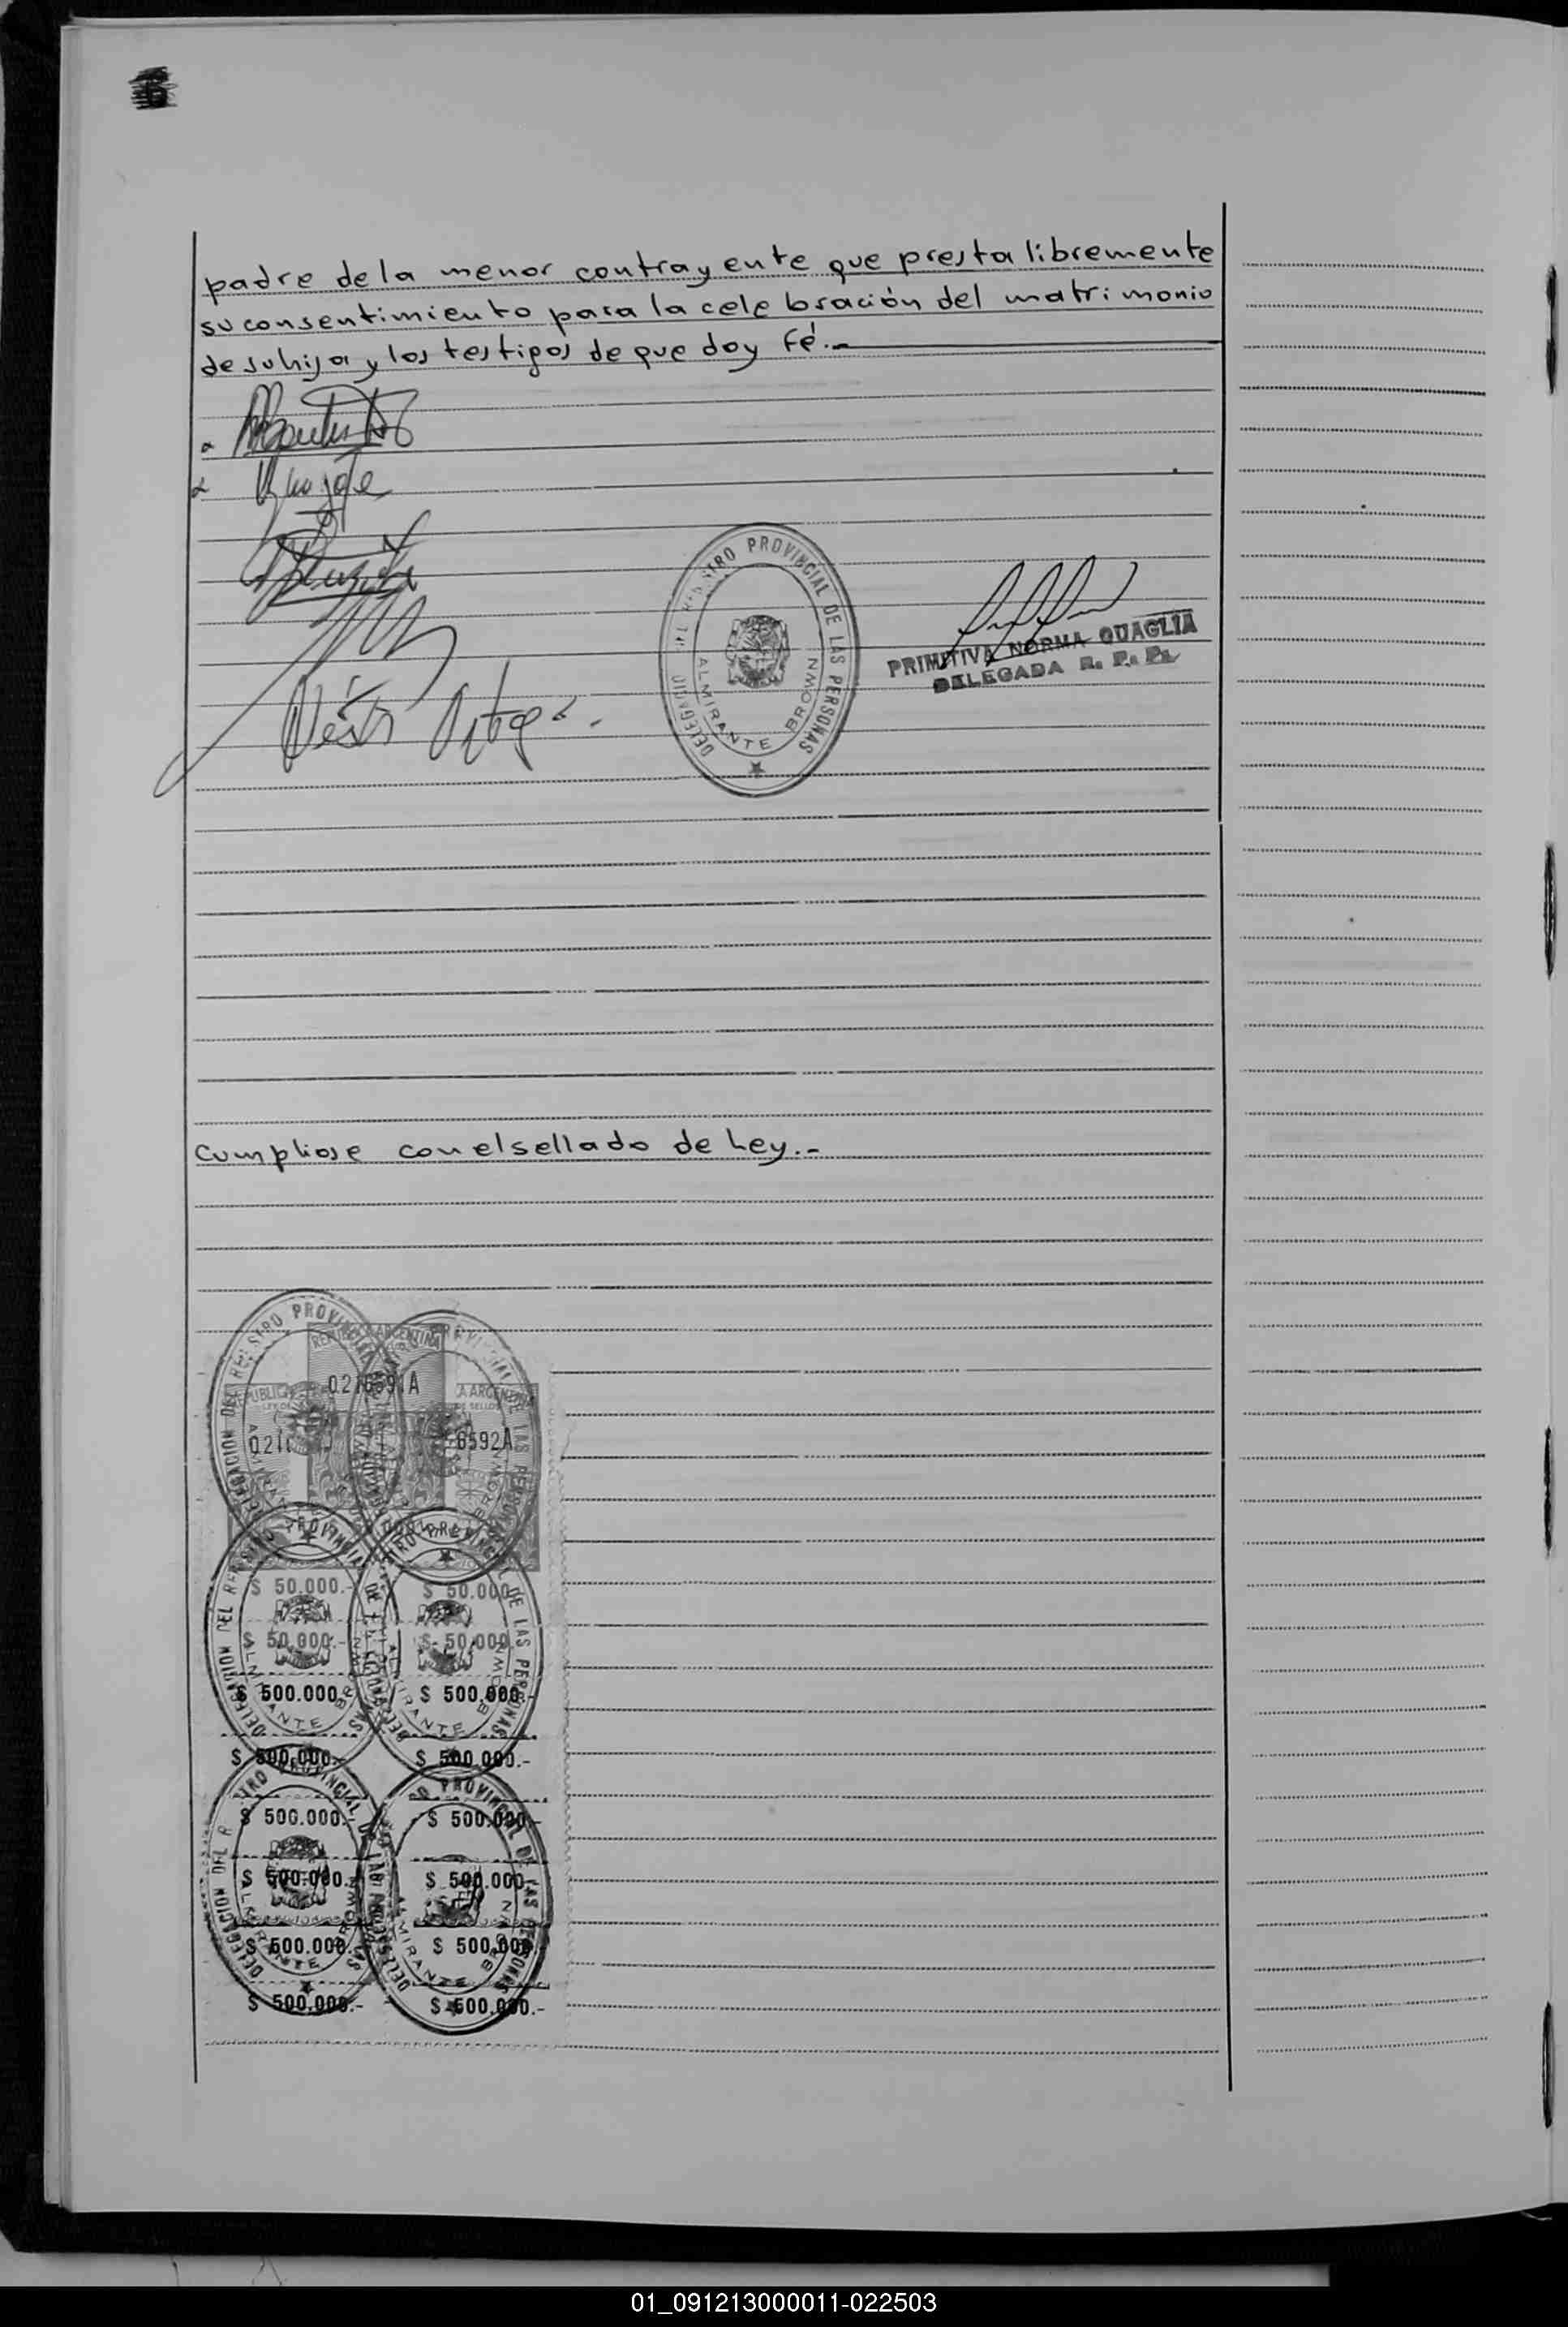 padre de la menor contrayente que presta libremente
su consentimiento para la celebración del matrimonio
de su hija y los testigos de que doy fé.-
Néstor Ortega.
DELEGACIÓN DEL REGISTRO PROVINCIAL DE LAS PERSONAS
ALMIRANTE BROWN
PRIMITIVA NORMA QUAGLIA
DELEGADA R. P. P.
Cumpliose con el sellado de Ley.-
REGISTRO PROVINCIAL
REPUBLICA ARGENTINA
0216591A
REPUBLICA ARGENTINA
6592A
DELEGACION DEL REGISTRO PROVINCIAL DE LAS PERSONAS
ALMIRANTE BROWN
$ 50.000.- $ 50.000.-
$ 50.000.- $ 50.000.-
$ 500.000.- $ 500.000.-
$ 500.000.- $ 500.000.-
$ 500.000.- $ 500.000.-
$ 500.000.- $ 500.000.-
$ 500.000.- $ 500.000.-
$ 500.000.- $ 500.000.-
01_091213000011-022503